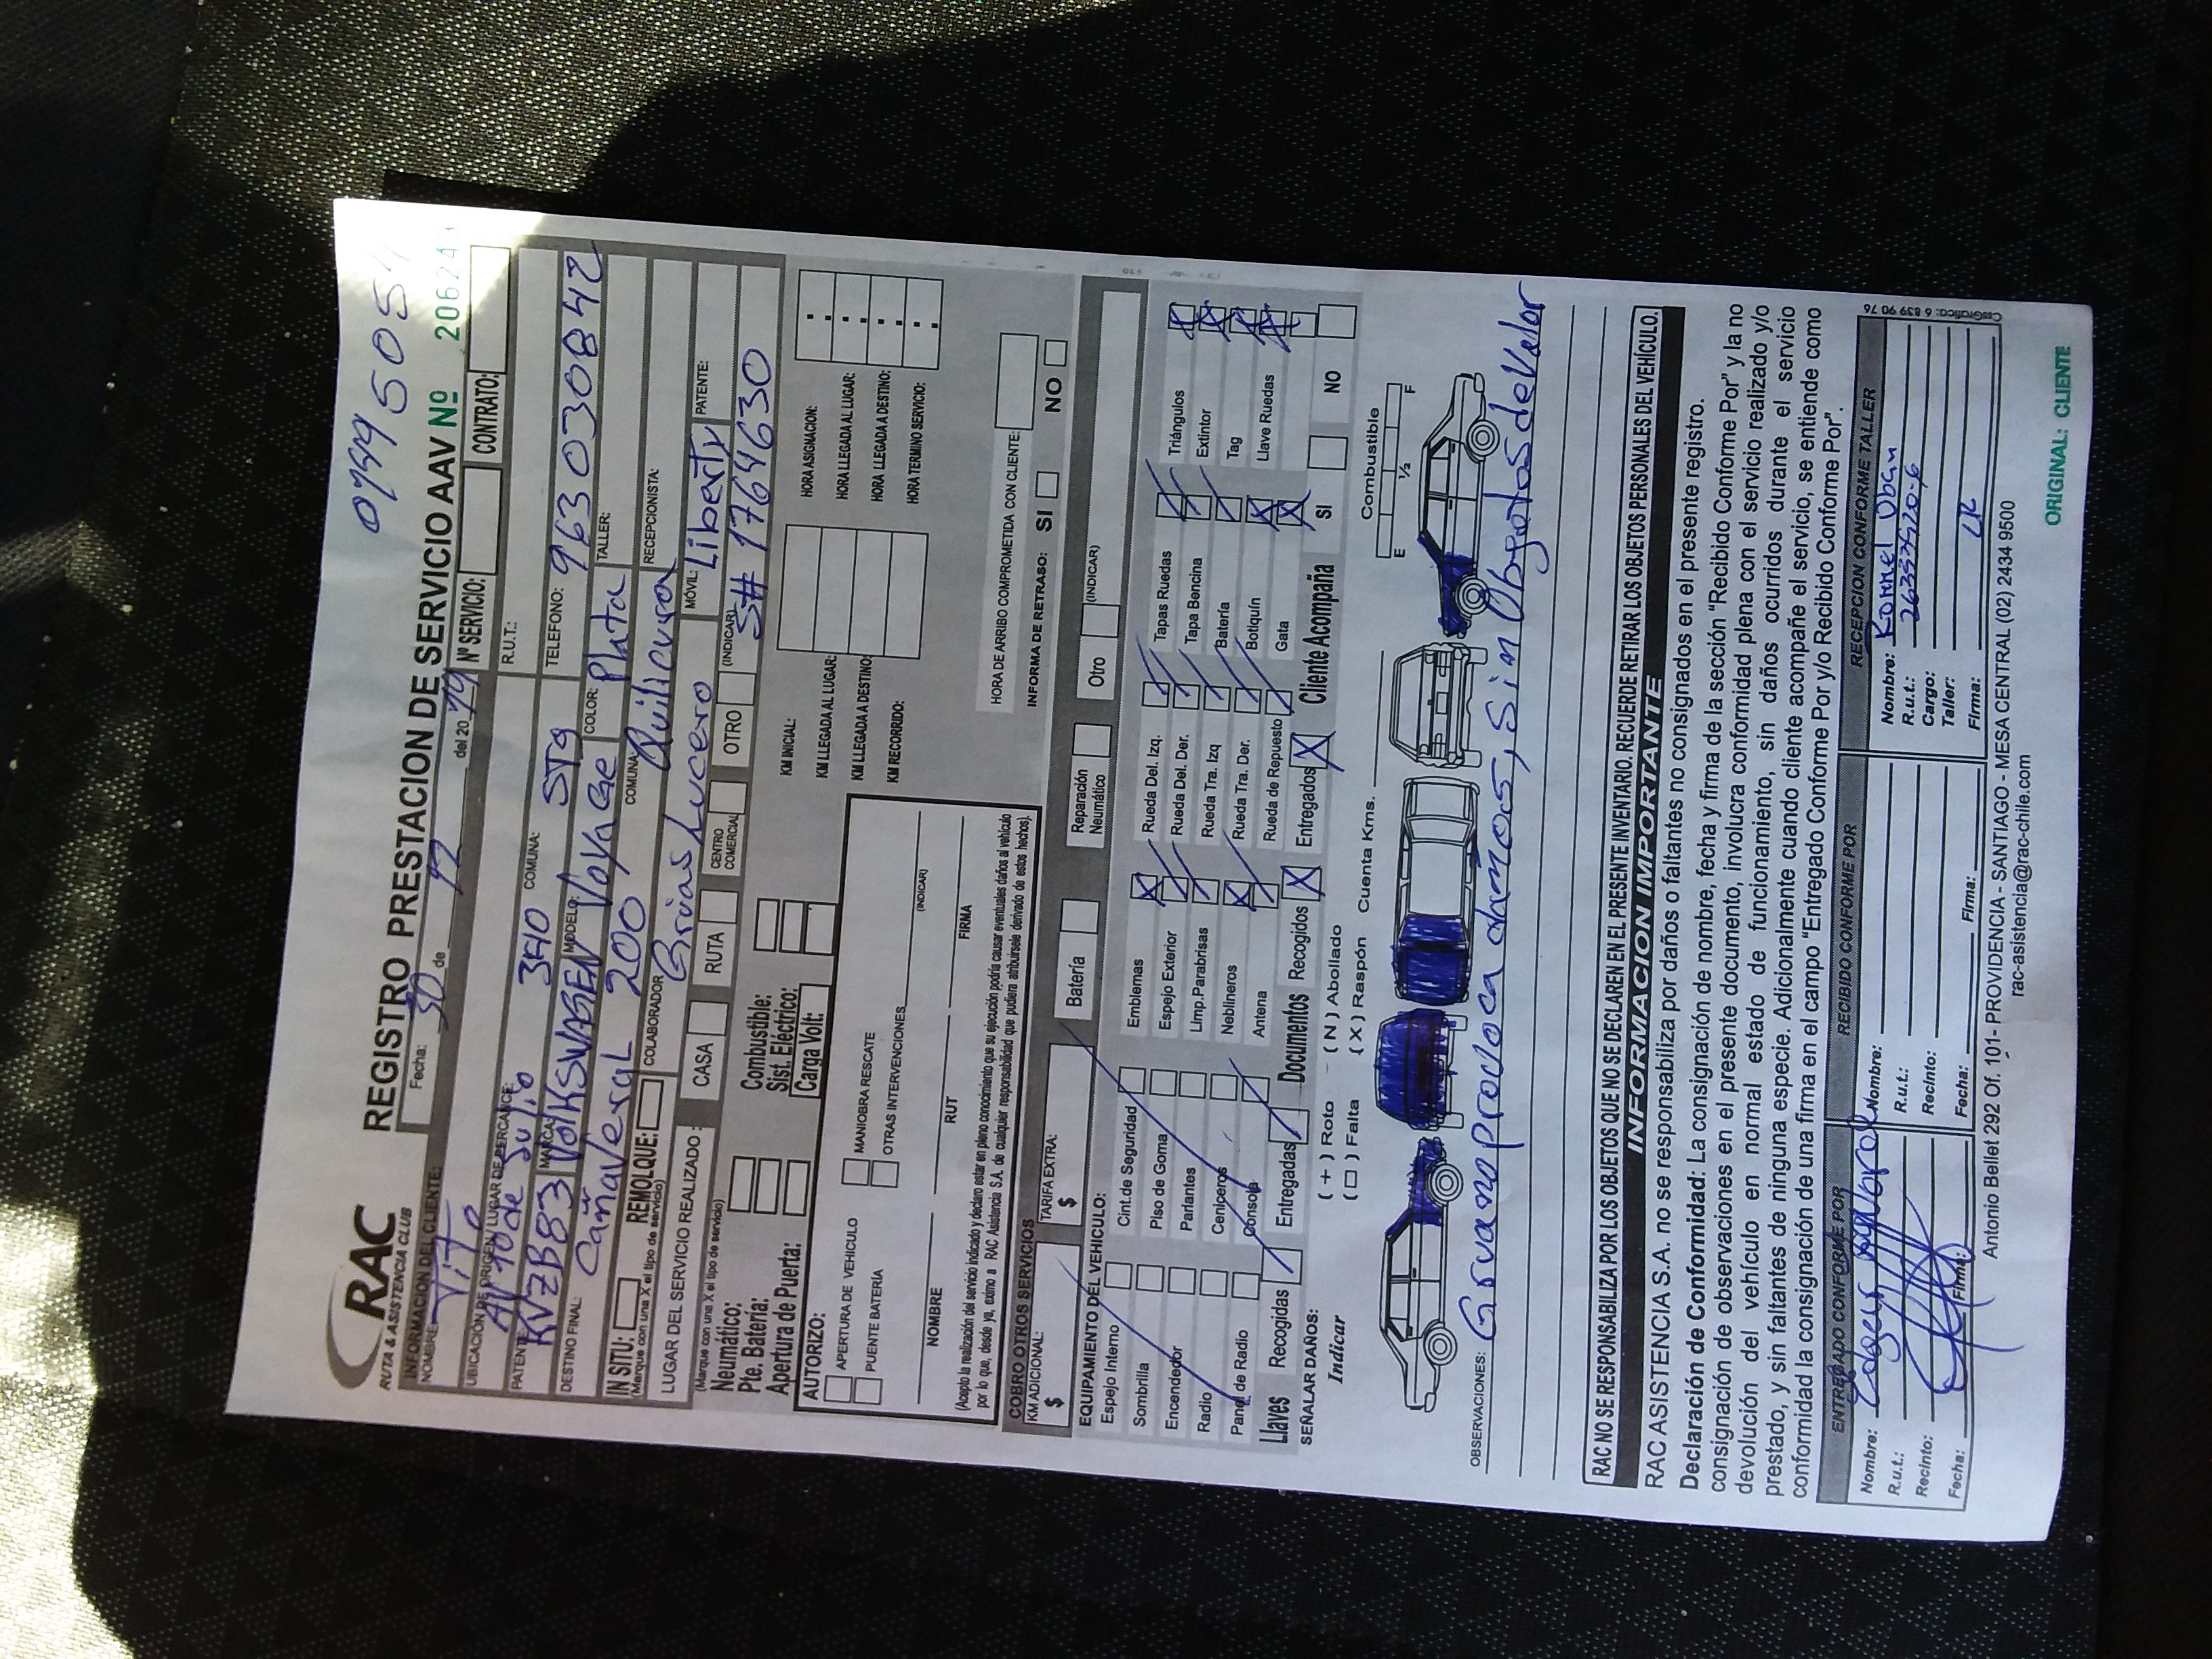 RAC
RUTA & ASISTENCIA CLUB
REGISTRO PRESTACION DE SERVICIO AAV Nº
Fecha: 30 de 12 del 20 19 Nº SERVICIO: CONTRATO:
INFORMACION DEL CLIENTE:
NOMBRE: R.U.T.:
UBICACIÓN DE ORIGEN / LUGAR DE PERCANCE: AV 10 de Julio 340 COMUNA: STg TELEFONO: 963030842
PATENTE: KVZB83 MARCA: VOlKSWAGEN MODELO: VoyaGe COLOR: Plata TALLER:
DESTINO FINAL: CañaVeraL 200 COMUNA: Quilicura RECEPCIONISTA:
IN SITU: REMOLQUE: COLABORADOR: Gruas Lucero MÓVIL: Liberty PATENTE:
(Marque con una X el tipo de servicio)
LUGAR DEL SERVICIO REALIZADO: CASA RUTA CENTRO COMERCIAL OTRO (INDICAR) S# 1764630
(Marque con una X el tipo de servicio)
Neumático: Combustible:
Pte. Batería: Sist. Eléctrico:
Apertura de Puerta: Carga Volt:
KM INICIAL: HORA ASIGNACION:
KM LLEGADA AL LUGAR: HORA LLEGADA AL LUGAR:
KM LLEGADA A DESTINO: HORA LLEGADA A DESTINO:
KM RECORRIDO: HORA TERMINO SERVICIO:
AUTORIZO:
APERTURA DE VEHICULO MANIOBRA RESCATE
PUENTE BATERÍA OTRAS INTERVENCIONES (INDICAR)
NOMBRE RUT FIRMA
(Acepto la realización del servicio indicado y declaro estar en pleno conocimiento que su ejecución podría causar eventuales daños al vehículo
por lo que, desde ya, eximo a RAC Asistencia S.A. de cualquier responsabilidad que pudiera atribuírsele derivado de estos hechos).
HORA DE ARRIBO COMPROMETIDA CON CLIENTE:
INFORMA DE RETRASO: SI NO
COBRO OTROS SERVICIOS
KM ADICIONAL: $ TARIFA EXTRA: $ Batería Reparación Neumático Otro (INDICAR)
EQUIPAMIENTO DEL VEHICULO:
Espejo Interno Cint.de Seguridad Emblemas Rueda Del. Izq. Tapas Ruedas Triángulos
Sombrilla Piso de Goma Espejo Exterior Rueda Del. Der. Tapa Bencina Extintor
Encendedor Parlantes Limp.Parabrisas Rueda Tra. Izq Batería Tag
Radio Ceniceros Neblineros Rueda Tra. Der. Botiquín Llave Ruedas
Panel de Radio Consola Antena Rueda de Repuesto Gata
Llaves Recogidas Entregadas Documentos Recogidos Entregados Cliente Acompaña SI NO
SEÑALAR DAÑOS:
Indicar ( + ) Roto ( N ) Abollado
( □ ) Falta ( X ) Raspón Cuenta Kms. Combustible
E 1/2 F
OBSERVACIONES: Grua no proboca daños, Sin Obgetos de Valor
RAC NO SE RESPONSABILIZA POR LOS OBJETOS QUE NO SE DECLAREN EN EL PRESENTE INVENTARIO. RECUERDE RETIRAR LOS OBJETOS PERSONALES DEL VEHÍCULO.
INFORMACION IMPORTANTE
RAC ASISTENCIA S.A. no se responsabiliza por daños o faltantes no consignados en el presente registro.
Declaración de Conformidad: La consignación de nombre, fecha y firma de la sección "Recibido Conforme Por" y la no
consignación de observaciones en el presente documento, involucra conformidad plena con el servicio realizado y/o
devolución del vehículo en normal estado de funcionamiento, sin daños ocurridos durante el servicio
prestado, y sin faltantes de ninguna especie. Adicionalmente cuando cliente acompañe el servicio, se entiende como
conformidad la consignación de una firma en el campo "Entregado Conforme Por y/o Recibido Conforme Por".
ENTREGADO CONFORME POR RECIBIDO CONFORME POR RECEPCION CONFORME TALLER
Nombre: Nombre: Nombre:
R.u.t.: R.u.t.: R.u.t.:
Recinto: Recinto: Cargo:
Taller:
Fecha: Firma: Fecha: Firma: Firma:
CssGrafica: 6 839 90 76
Antonio Bellet 292 Of. 101- PROVIDENCIA - SANTIAGO - MESA CENTRAL (02) 2434 9500
rac-asistencia@rac-chile.com
ORIGINAL: CLIENTE